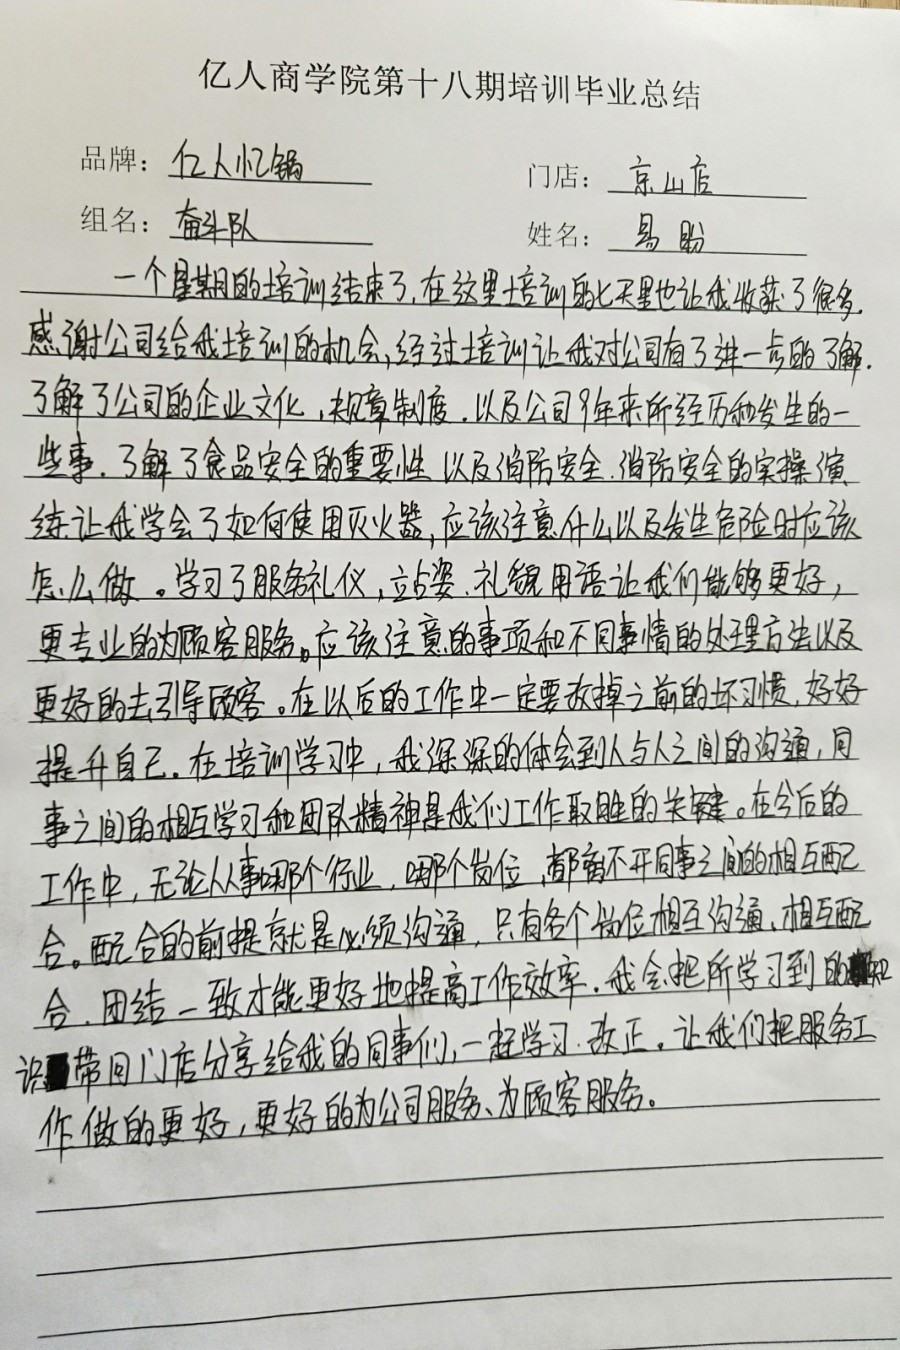 亿人商学院第十八期培训毕业总结
品牌：亿人忆锅
门店：京山店
组名：奋斗队
姓名：易盼
一个星期的培训结束了，在这里培训的七天里也让我收获了很多，
感谢公司给我培训的机会，经过培训让我对公司有了进一步的了解。
了解了公司的企业文化，规章制度，以及公司9年来所经历和发生的一
些事，了解了食品安全的重要性 以及消防安全，消防安全的实操演
练让我学会了如何使用灭火器，应该注意什么以及发生危险时应该
怎么做。学习了服务礼仪，立占姿、礼貌用语让我们能够更好，
更专业的为顾客服务。应该注意的事项和不同事情的处理方法以及
更好的去引导顾客。在以后的工作中一定要改掉之前的坏习惯，好好
提升自己。在培训学习中，我深深的体会到人与人之间的沟通，同
事之间的相互学习和团队精神是我们工作取胜的关键。在今后的
工作中，无论从事哪个行业，哪个岗位，都离不开同事之间的相互配
合。配合的前提就是必须沟通，只有各个岗位相互沟通、相互配
合、团结一致才能更好地提高工作效率。我会把所学习到的知
识带回门店分享给我的同事们，一起学习、改正。让我们把服务工
作做的更好，更好的为公司服务、为顾客服务。